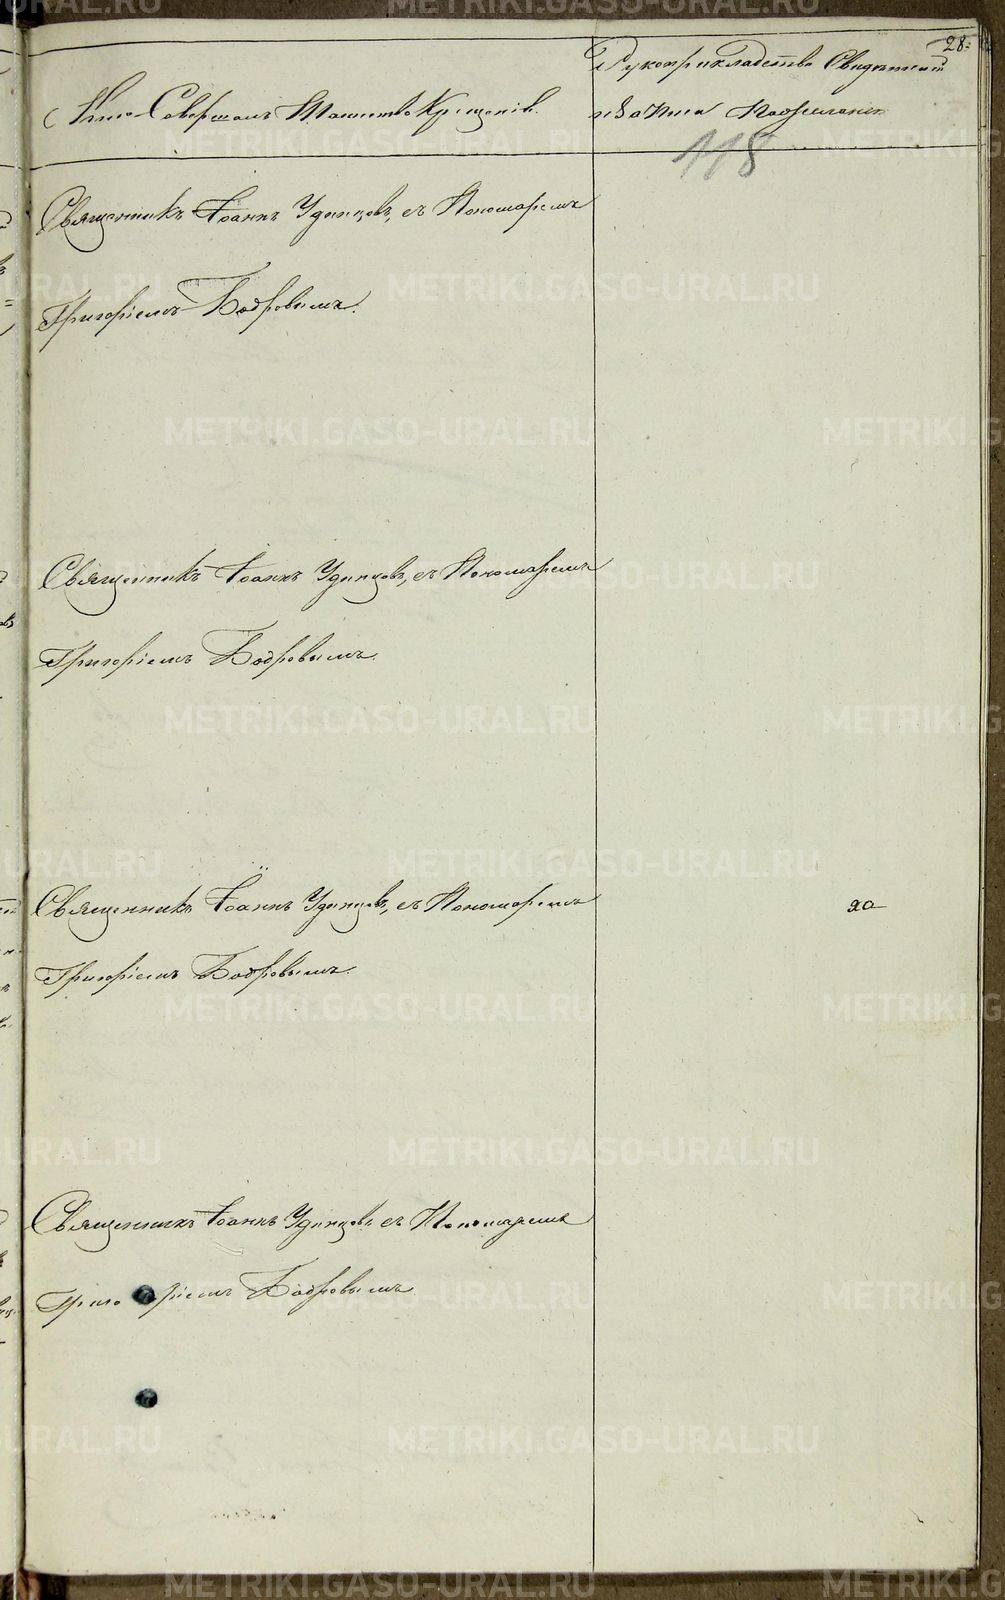 28.
Кто Совершалъ Таинство Крещенія.
Рукоприкладство Свидѣтелей
записи
118
Священникъ Іоаннъ Удинцовъ, съ Пономаремъ
Григоріемъ Бодровымъ.
Священникъ Іоаннъ Удинцовъ, съ Пономаремъ
Григоріемъ Бодровымъ.
Священникъ Іоаннъ Удинцовъ, съ Пономаремъ
Григоріемъ Бодровымъ.
Священникъ Іоаннъ Удинцовъ съ Пономаремъ
Григоріемъ Бодровымъ
METRIKI.GASO-URAL.RU